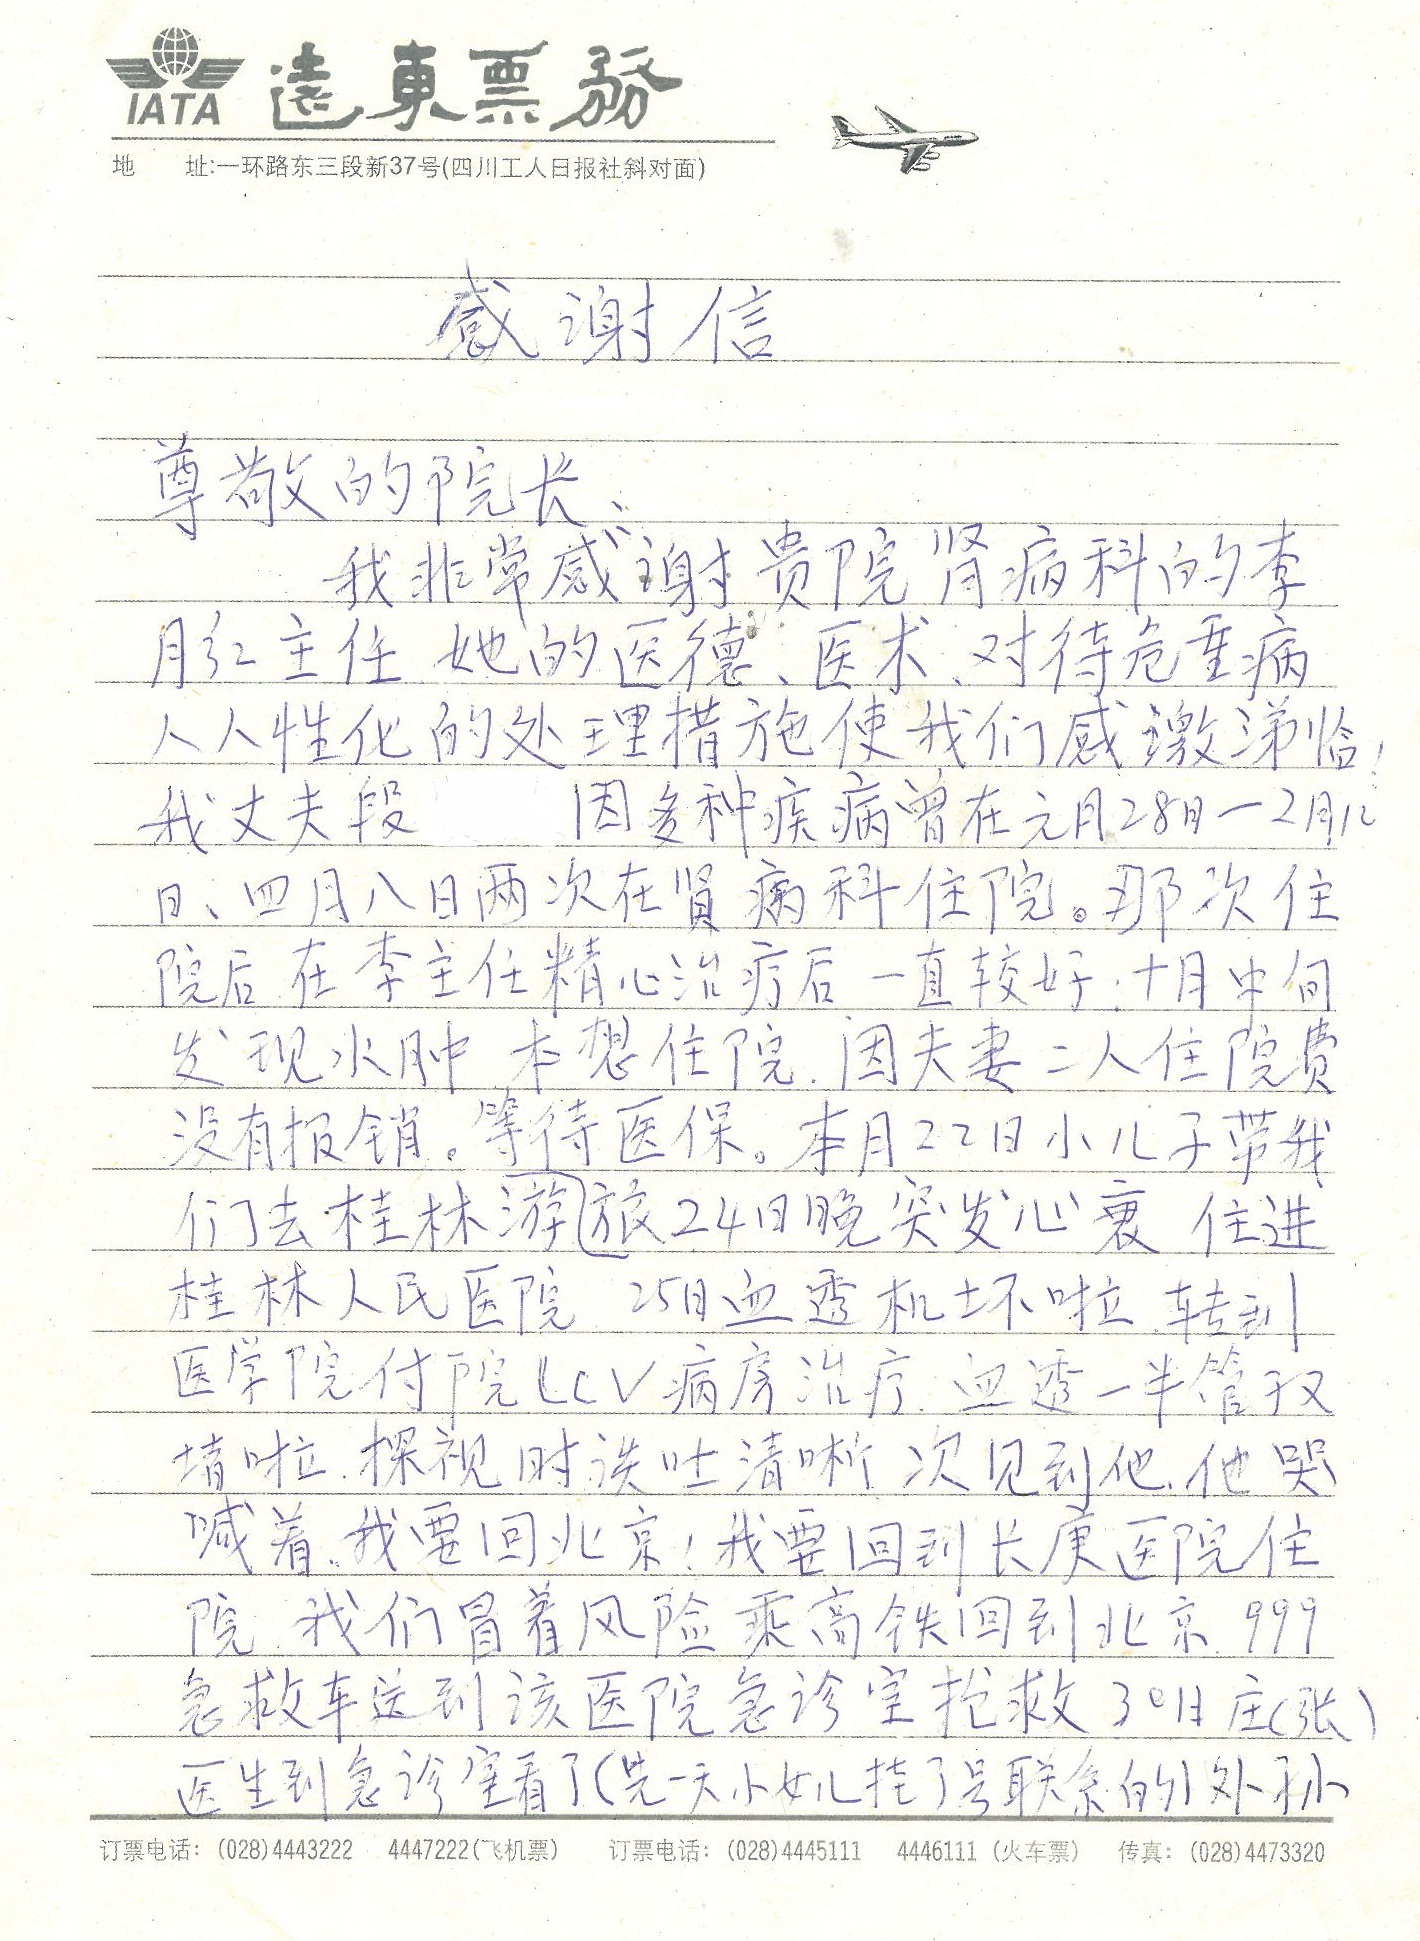 IATA 遠東票務
地 址:一环路东三段新37号(四川工人日报社斜对面)
感谢信
尊敬的院长、
我非常感谢贵院肾病科的李
月红主任 她的医德、医术、对待危重病
人人性化的处理措施使我们感激涕恰!
我丈夫段 因多种疾病曾在元月28日一2月12
日、四月八日两次在肾病科住院。那次住
院后在李主任精心治疗后一直较好.十月中旬
发现水肿 本想住院.因夫妻二人住院费
没有报销。等待医保。本月22日小儿子带我
们去桂林游旅24日晚突发心衰 住进
桂林人民医院 25日血透机坏啦.转到
医学院付院LCV病房治疗.血透一半管子又
堵啦.探视时谈吐清晰 次见到他.他哭
喊着.我要回北京!我要回到长庚医院住
院.我们冒着风险乘高铁回到北京.999
急救车送到该医院急诊室抢救30日庄(张)
医生到急诊室看了(先一天小女儿挂了号联系的)外孙
订票电话: (028)4443222 4447222(飞机票) 订票电话: (028)4445111 4446111 (火车票) 传真: (028)4473320